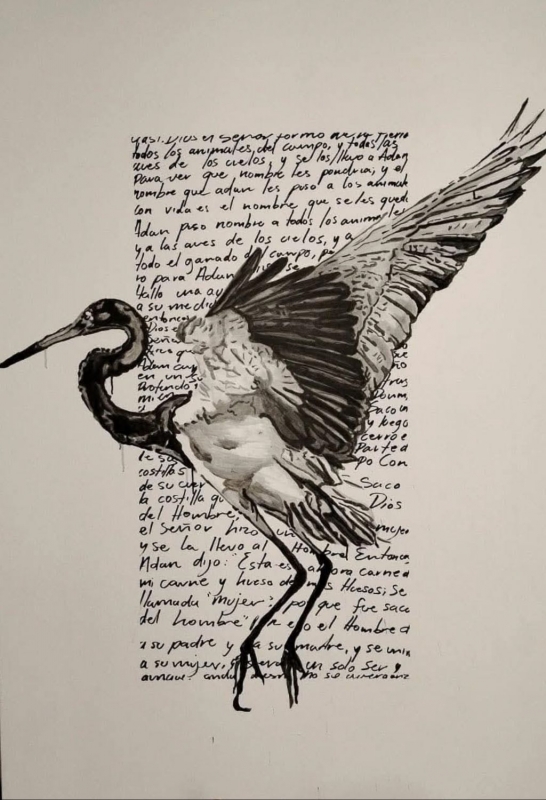 y así. Dios el Señor formo de la tierra
todos los animales, del campo, y todas las
aves de los cielos, y se los llevo a Adan
Para ver que nombre les pondria; y el
nombre que adan les puso a los animale
con vida es el nombre que se les quedó
Adan puso nombre a todos los animales
y a las aves de los cielos, y a
todo el ganado del campo, pe
ro para Adan se
hallo una ay
a su medid
entonces
Dios e
Señor
hizo que
Adan cay
en un su
Profundo
mi
tras
Saco u
y luego
cerro e
Parte d
de su
po Con
costillas
Saco
de su cuer
Dios
la costilla q
del Hombre,
el Señor hizo un mujer
y se la llevo al Hombre. Entonce
Adan dijo: "Esta es ahora carne d
mi carne y hueso de mis Huesos; Se
llamada "mujer" porque fue saca
del hombre" Por eso el Hombre d
a su padre y a su madre, y se un
a su mujer, y seran un solo ser y